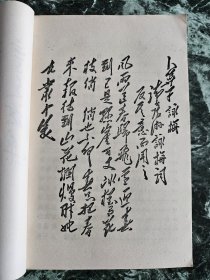 卜算子 詠梅
讀陸游詠梅詞
反其意而用之
風雨送春歸飛雪迎春
到已是懸崖百丈冰猶有花
枝俏 俏也不爭春只把春
來報待到山花爛漫時她
在叢中笑